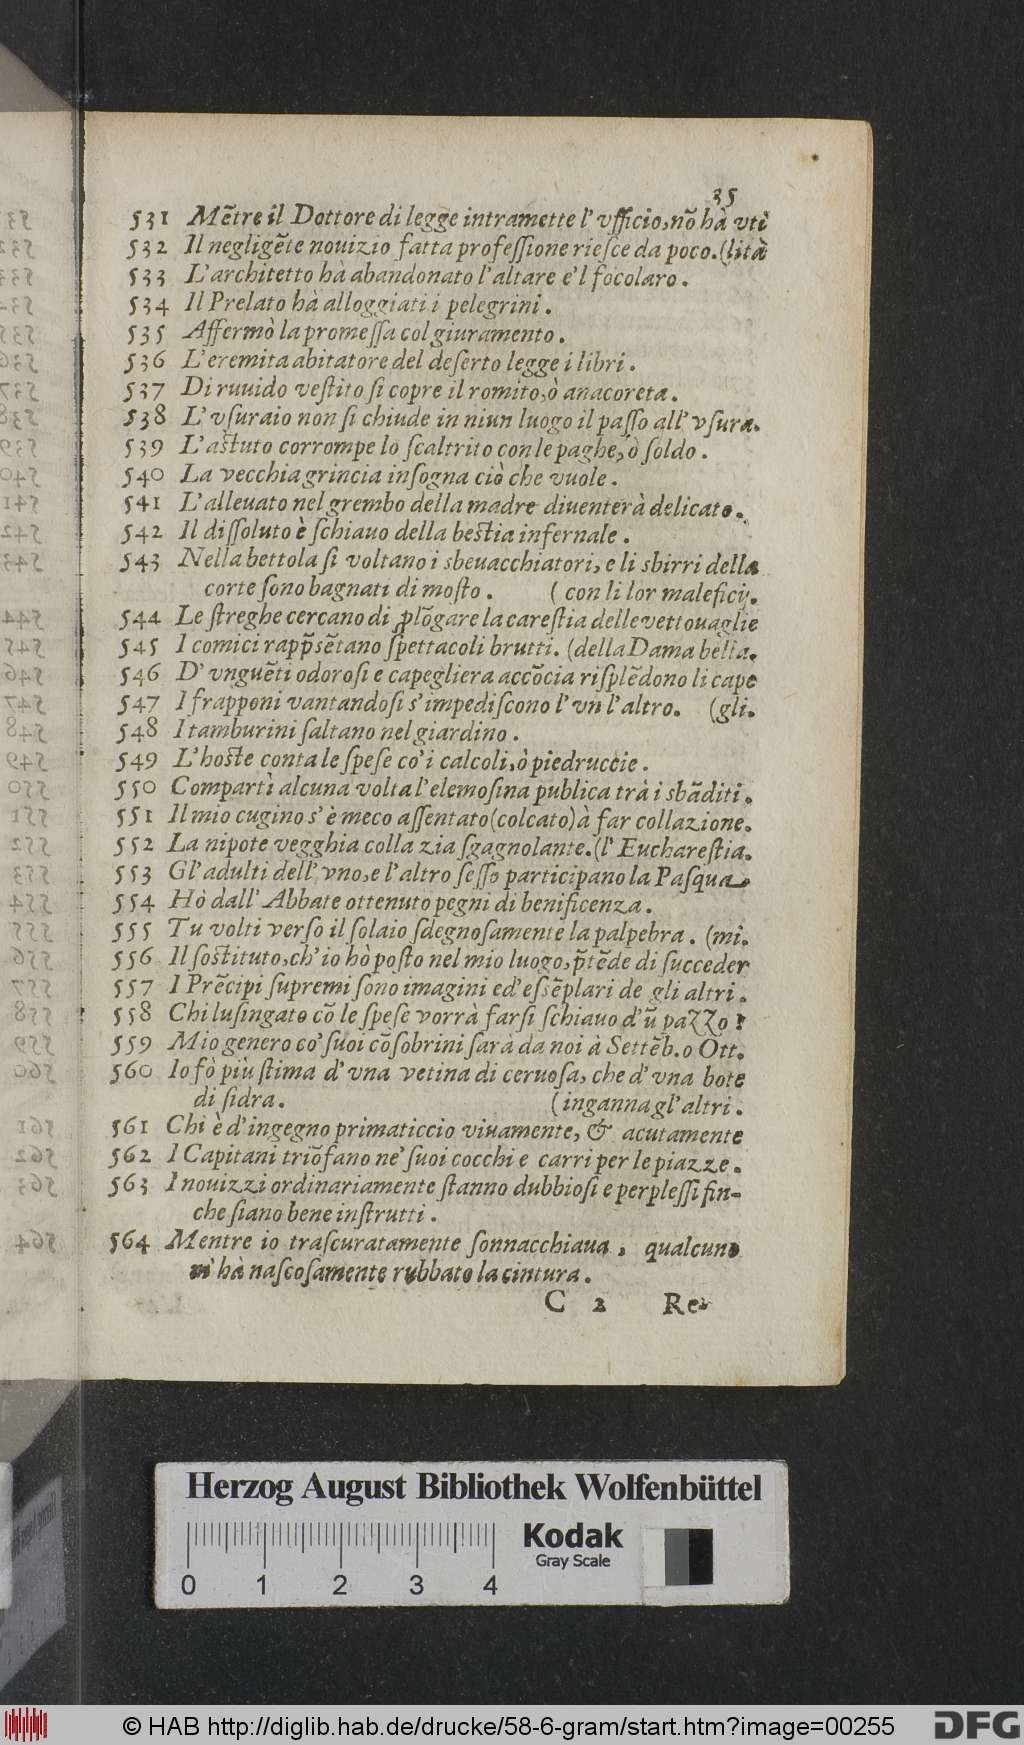 35
531 Mẽtre il Dottore di legge intramette l'vfficio, nõ hà vti
532 Il negligẽte nouizio fatta profeſſione rieſce da poco. (lità
533 L'architetto hà abandonato l'altare e'l focolaro.
534 Il Prelato hà alloggiati i pelegrini.
535 Affermò la promeſſa col giuramento.
536 L'eremita abitatore del deſerto legge i libri.
537 Di ruuido veſtito ſi copre il romito, ò anacoreta.
538 L'vſuraio non ſi chiude in niun luogo il paſſo all'vſura.
539 L'aſtuto corrompe lo ſcaltrito con le paghe, ò ſoldo.
540 La vecchia grincia inſogna ciò che vuole.
541 L'alleuato nel grembo della madre diuenterà delicato.
542 Il diſſoluto è ſchiauo della beſtia infernale.
543 Nella bettola ſi voltano i sbeuacchiatori, e li sbirri della
corte ſono bagnati di moſto. ( con li lor maleficij.
544 Le ſtreghe cercano di ꝓlõgare la careſtia delle vettouaglie
545 I comici rapp̃sẽtano ſpettacoli brutti. (della Dama bella.
546 D'vnguẽti odoroſi e capegliera accõcia riſplẽdono li cape
547 I frapponi vantandoſi s'impediſcono l'vn l'altro. (gli.
548 I tamburini ſaltano nel giardino.
549 L'hoſte conta le ſpeſe co'i calcoli, ò piedruccie.
550 Compartì alcuna volta l'elemoſina publica trà i sbãditi.
551 Il mio cugino s'è meco aſſentato (colcato) à far collazione.
552 La nipote vegghia colla zia ſgagnolante. (l'Euchareſtia.
553 Gl'adulti dell'vno, e l'altro ſeſſo participano la Paſqua
554 Hò dall'Abbate ottenuto pegni di benificenza.
555 Tu volti verſo il ſolaio sdegnoſamente la palpebra. (mi.
556 Il ſoſtituto, ch'io hò poſto nel mio luogo, p̃tẽde di ſucceder
557 I Prẽcipi ſupremi ſono imagini ed'eſsẽplari de gli altri.
558 Chi luſingato cõ le ſpeſe vorrà farſi ſchiauo d'ũ pazzo?
559 Mio genero co' ſuoi cõſobrini ſarà da noi à Settẽb. o Ott.
560 Io fò più ſtima d'vna vetina di ceruoſa, che d'vna bote
di ſidra. (inganna gl'altri.
561 Chi è d'ingegno primaticcio viuamente, & acutamente
562 I Capitani triõfano ne' ſuoi cocchi e carri per le piazze.
563 I nouizzi ordinariamente ſtanno dubbioſi e perpleſſi fin-
che ſiano bene inſtrutti.
564 Mentre io traſcuratamente ſonnacchiaua, qualcuno
mi hà naſcoſamente rubbato la cintura.
C 2 Re-
Herzog August Bibliothek Wolfenbüttel
Kodak
Gray Scale
0 1 2 3 4
© HAB http://diglib.hab.de/drucke/58-6-gram/start.htm?image=00255
DFG